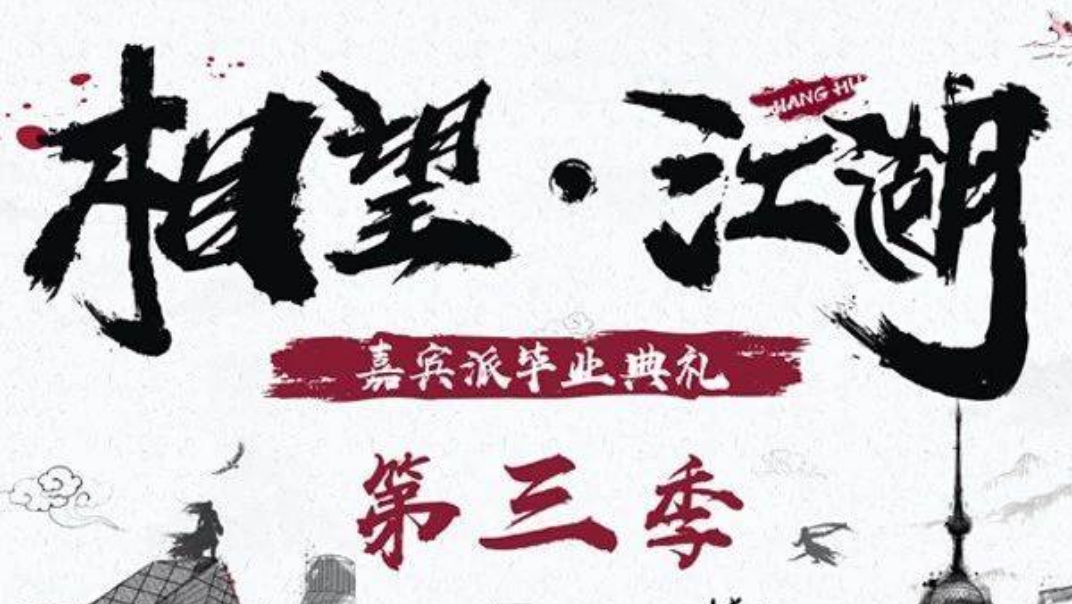 相望·江湖
JIANG HU
嘉宾派毕业典礼
第三季